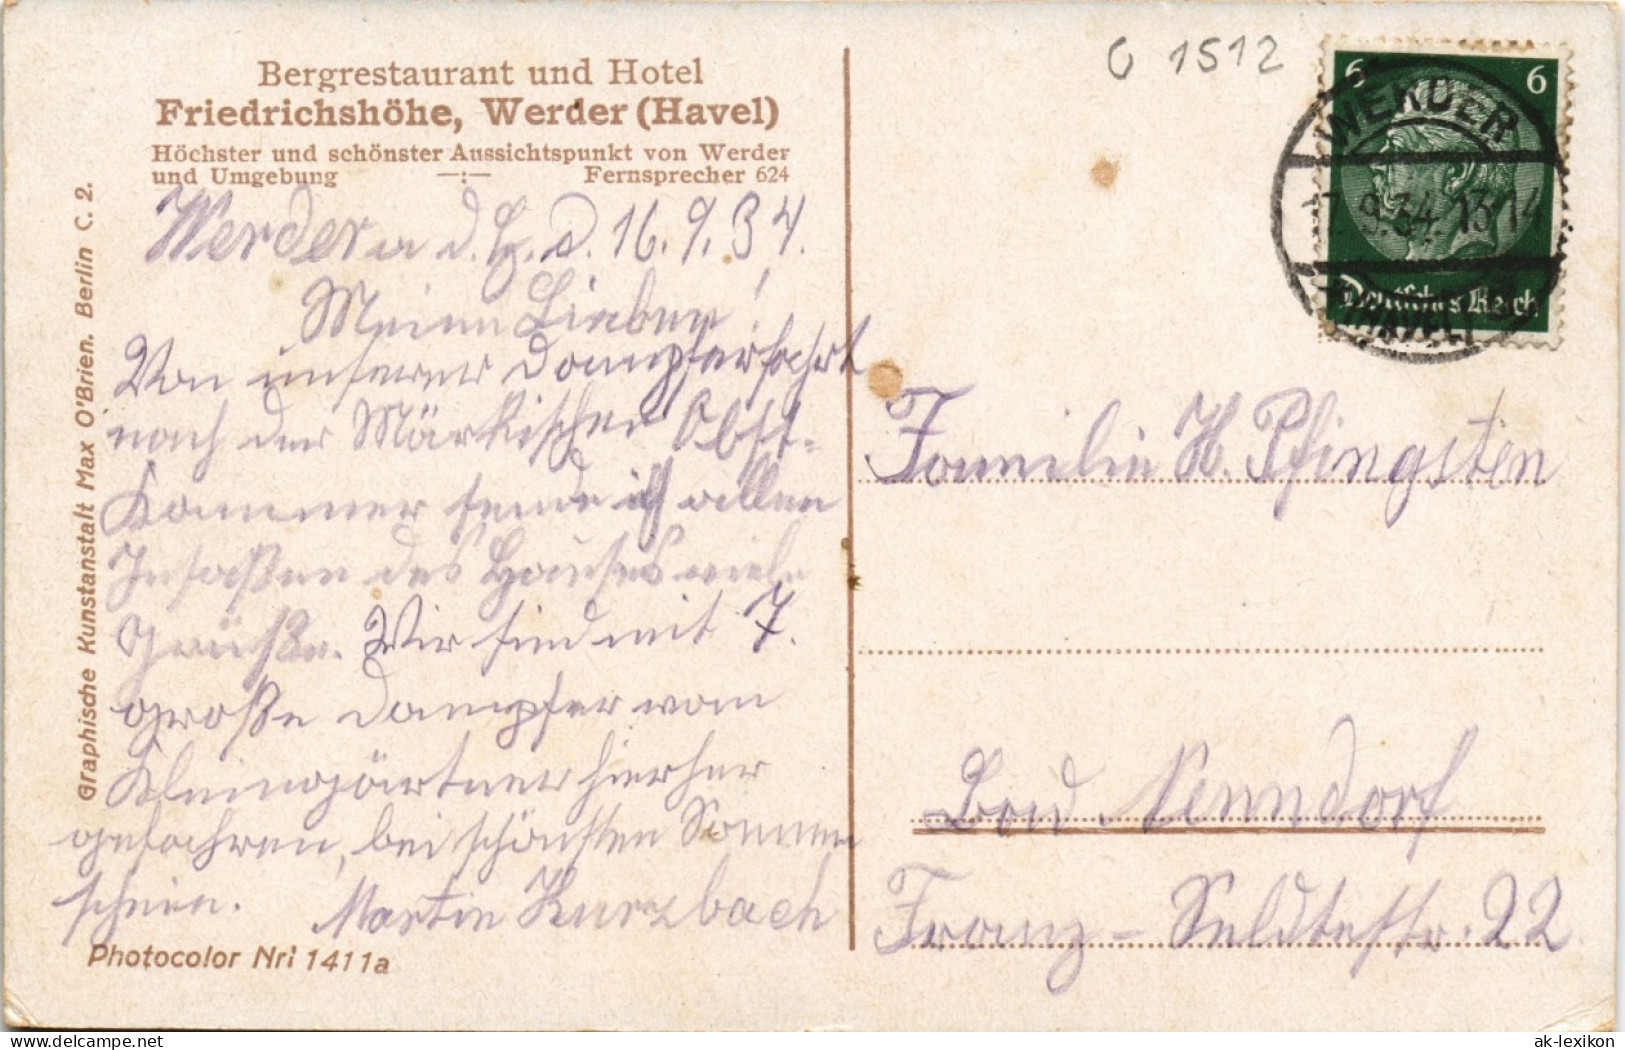 Bergrestaurant und Hotel
Friedrichshöhe, Werder (Havel)
Höchster und schönster Aussichtspunkt von Werder
und Umgebung —:— Fernsprecher 624
Werder a d. H. d. 16.9.34.
Meine Lieben!
Von unserer Dampferfahrt
nach der Märkischen Obst-
kammer sende ich allen
Insaßen des Hauses viele
Grüße. Wir sind mit 7.
große Dampfer vom
Kleingärtner hierher
gefahren, bei schönsten Sonnen
schein. Martin Kurzbach
Photocolor Nr: 1411a
Graphische Kunstanstalt Max O'Brien. Berlin C. 2.
0 1512
6 6
Deutsches Reich
WERDER
17.9.34. 13-14
(HAVEL)
Familie H. Pfingsten
Bad Nenndorf
Franz-Seldtestr. 22
ak-lexikon.de